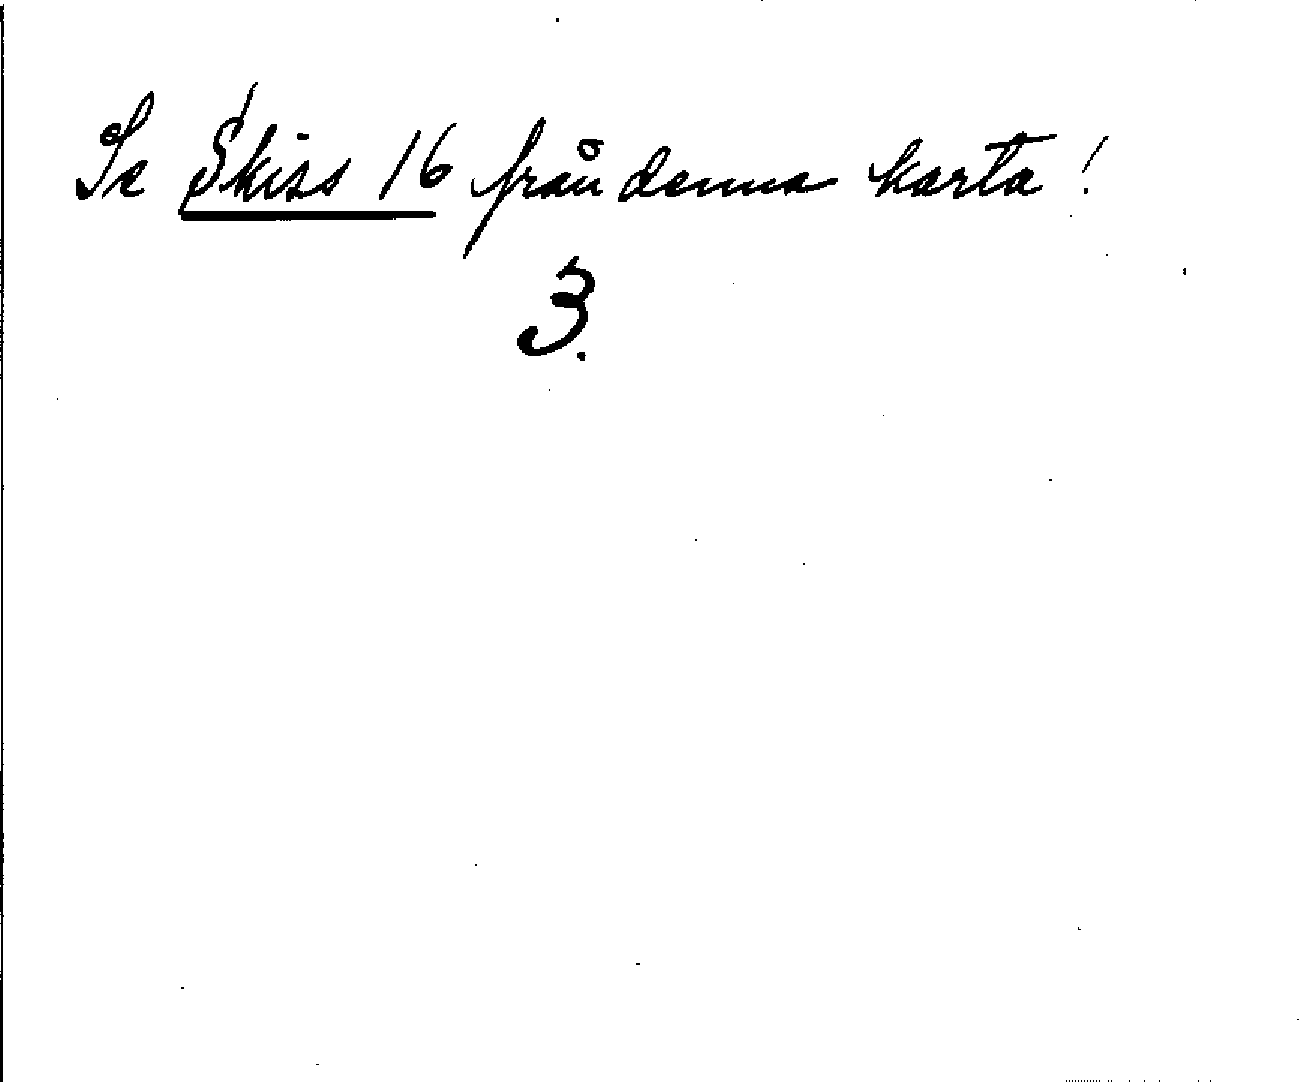 Se Skiss 16 från denna karta!
3.